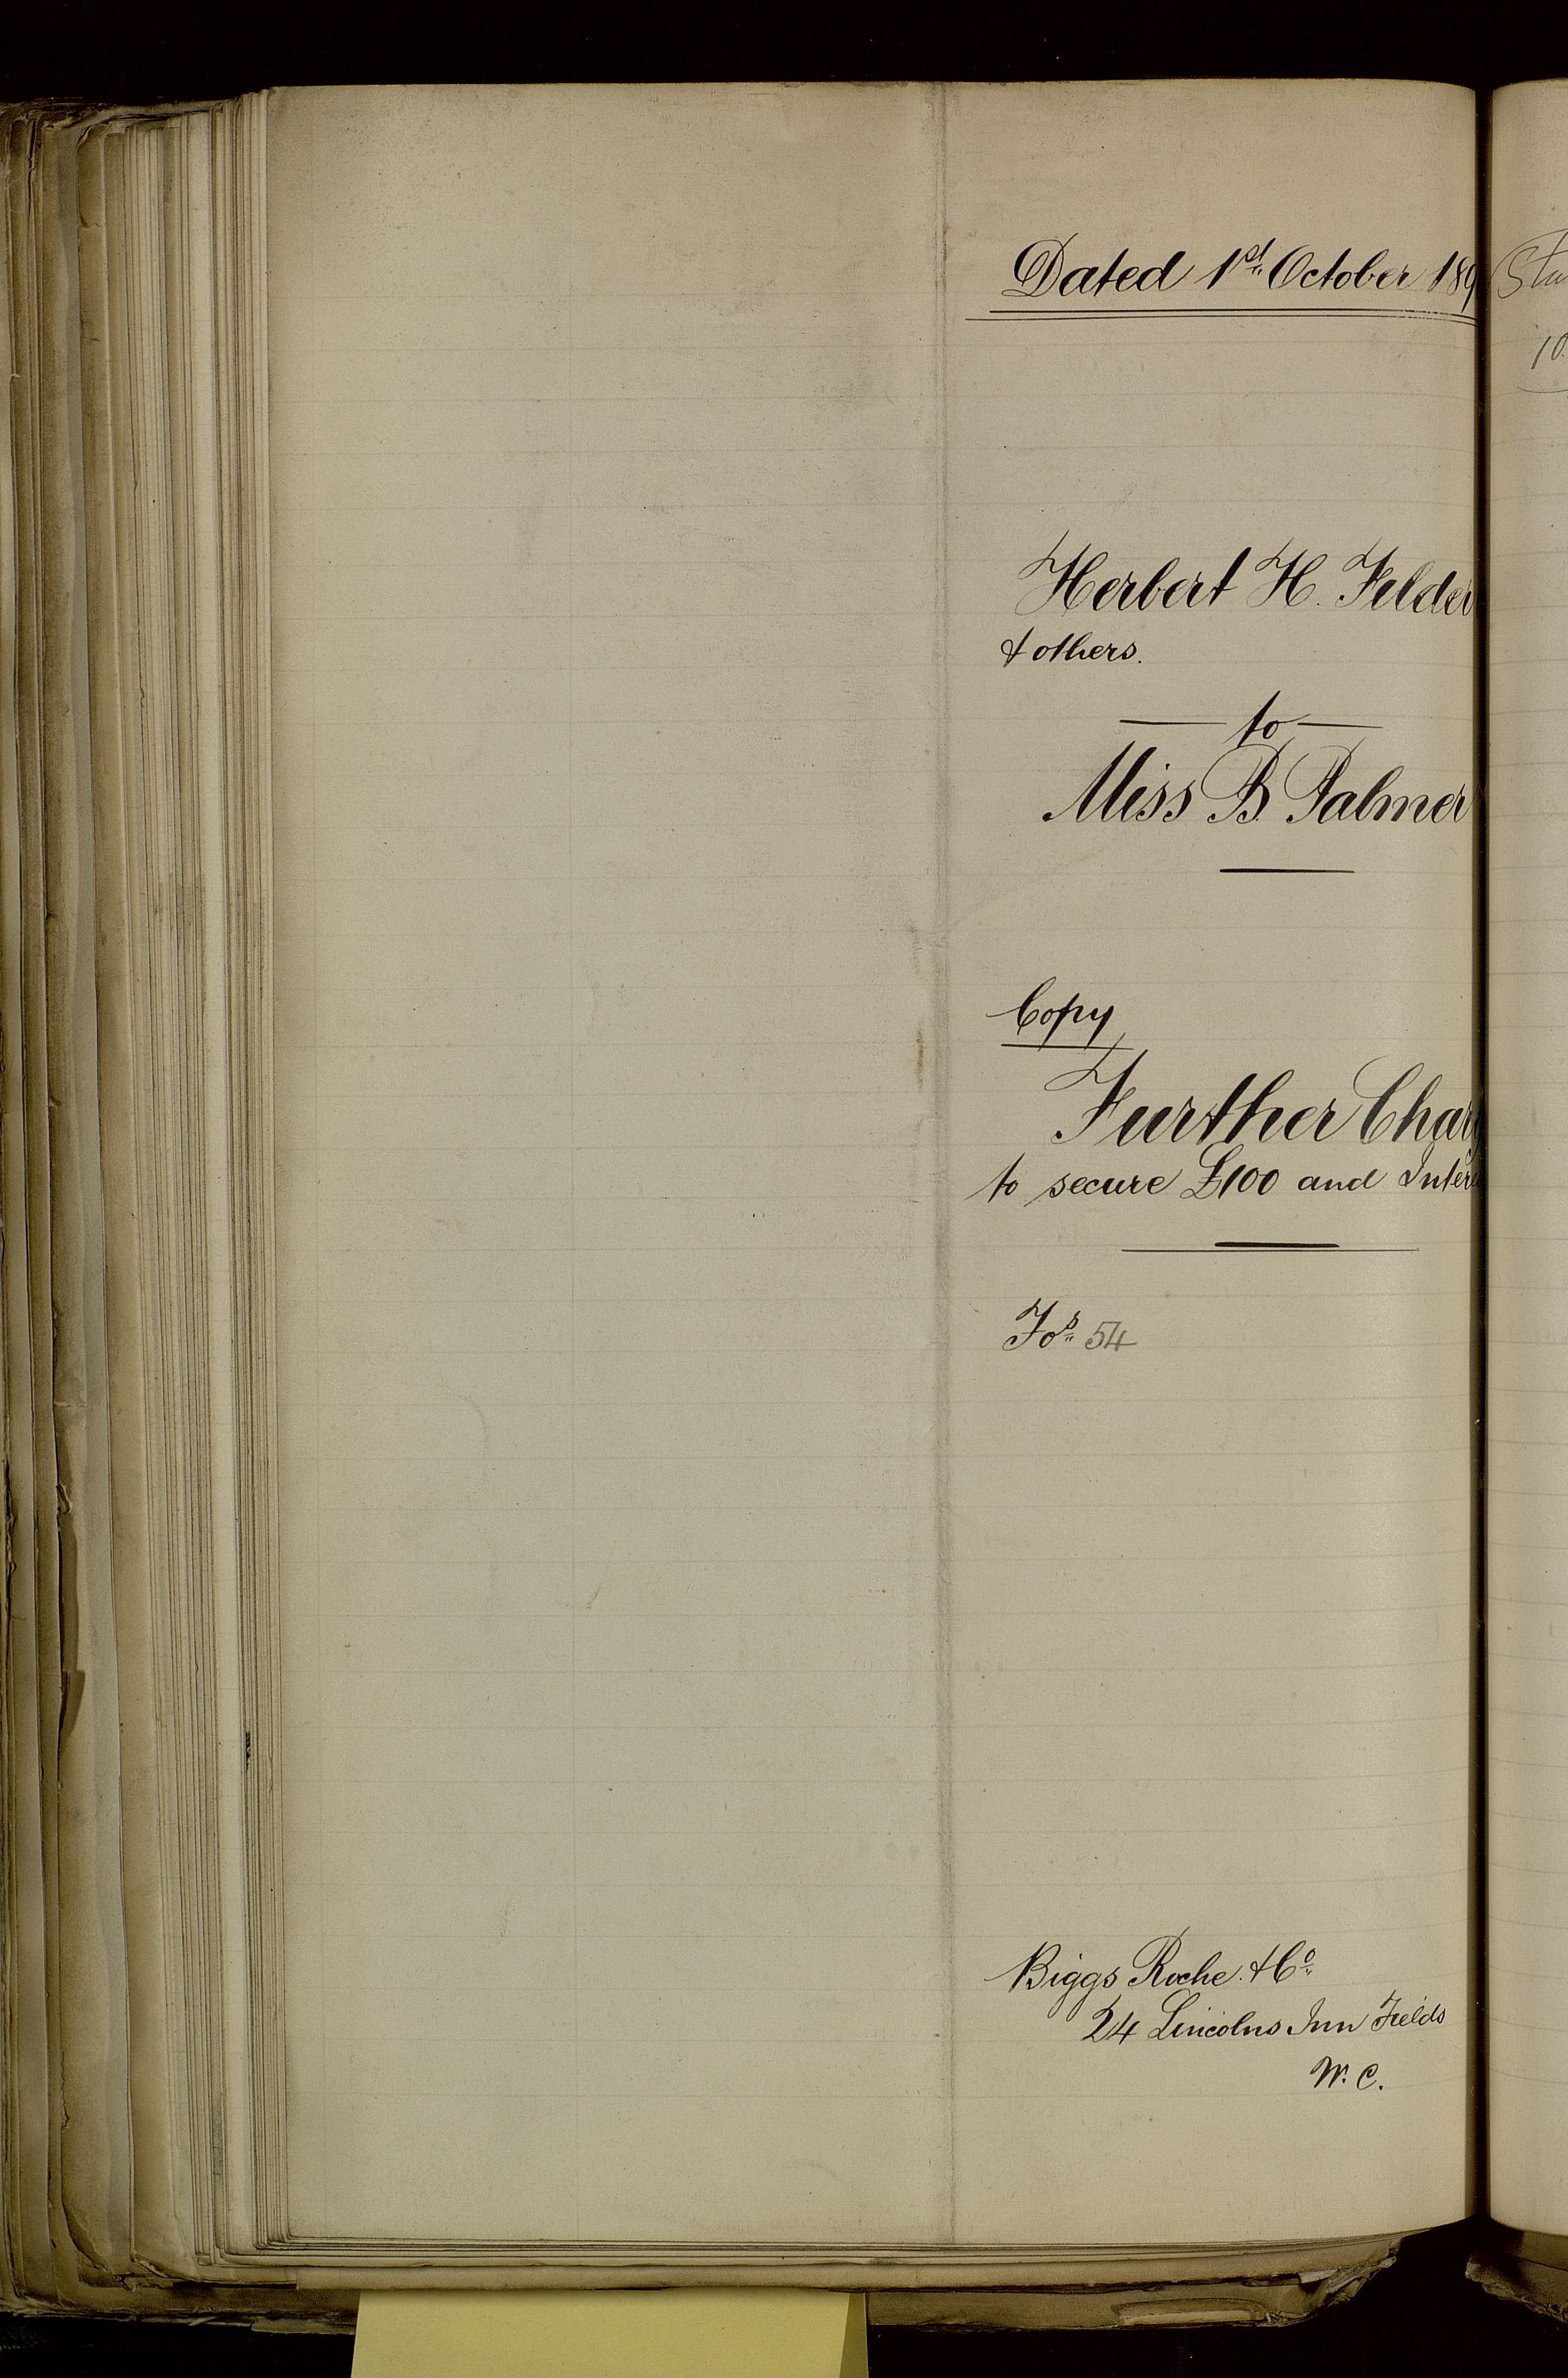 Dated 1st October 189
Herbert H. Felder
& others.
to
Miss B. Palmer
Copy
Further Charg
to secure £100 and Intere
Fos 54
Biggs Roche. & Co
24 Lincolns Inn Fields
W. C.
10